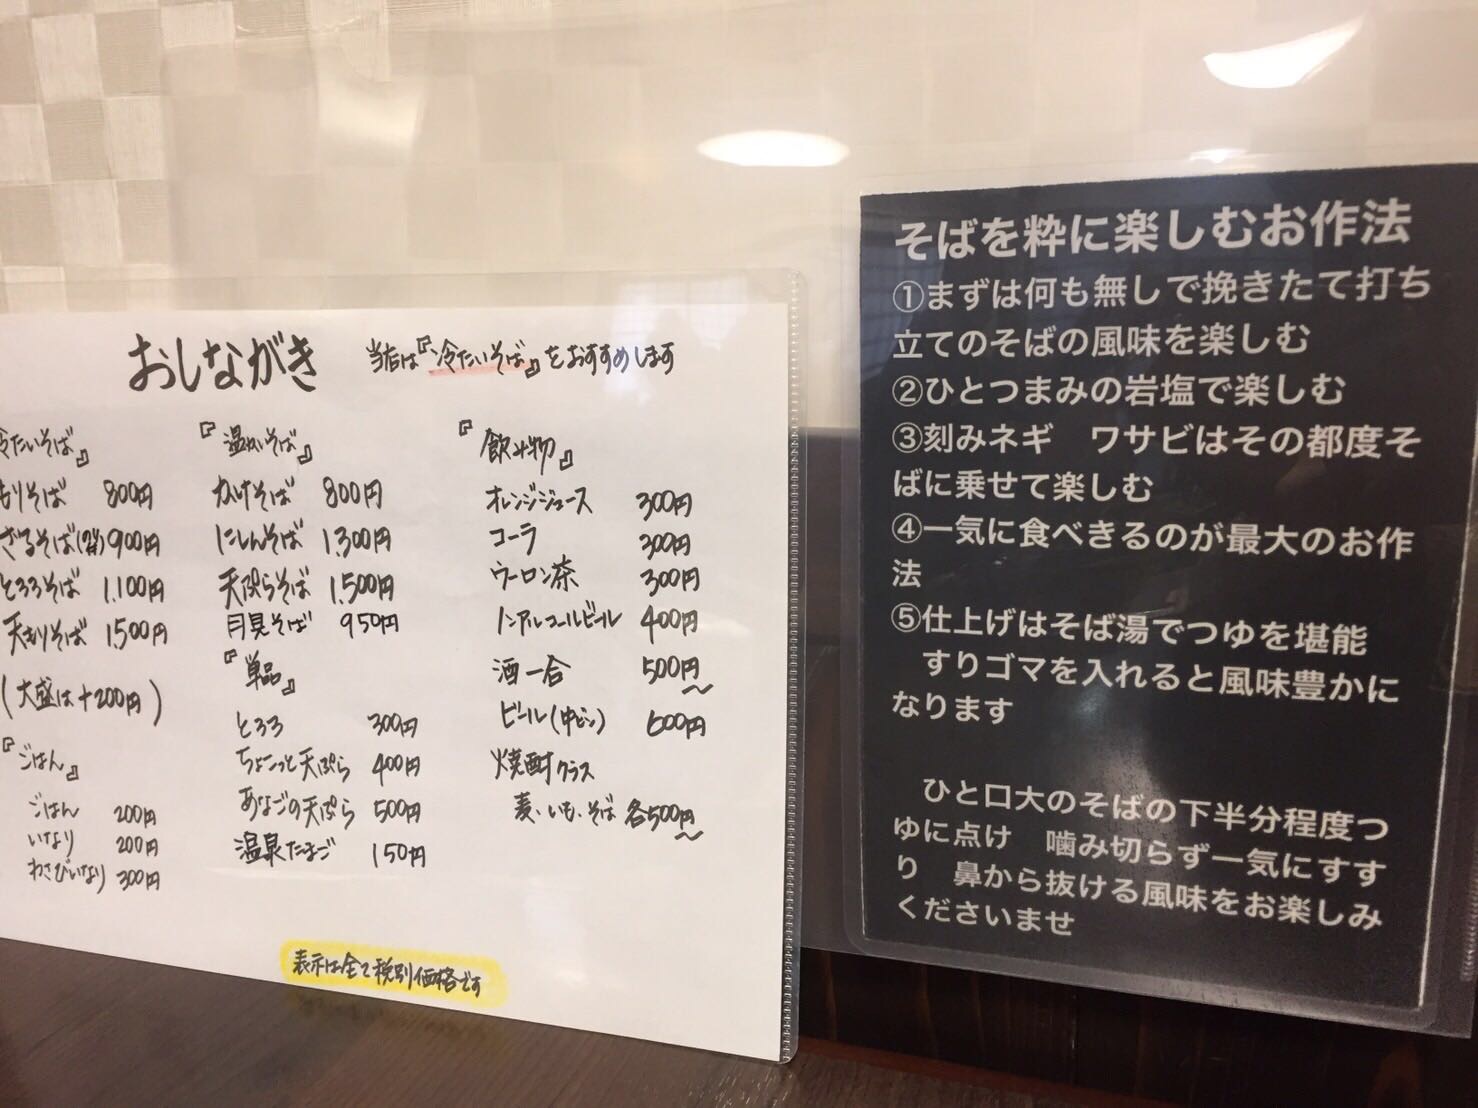 おしながき
当店は『冷たいそば』をおすすめします
冷たいそば』
もりそば 800円
ざるそば 900円
とろろそば 1,100円
天もりそば 1,500円
(大盛は+200円)
『ごはん』
ごはん 200円
いなり 200円
わさびいなり 300円
『温かいそば』
かけそば 800円
にしんそば 1,300円
天ぷらそば 1,500円
月見そば 950円
『単品』
とろろ 300円
ちょこっと天ぷら 400円
あなごの天ぷら 500円
温泉たまご 150円
『飲み物』
オレンジジュース 300円
コーラ 300円
ウーロン茶 300円
ノンアルコールビール 400円
酒一合 500円〜
ビール(中ビン) 600円
焼酎グラス
麦、いも、そば 各500円〜
表示は全て税別価格です
そばを粋に楽しむお作法
①まずは何も無しで挽きたて打ち
立てのそばの風味を楽しむ
②ひとつまみの岩塩で楽しむ
③刻みネギ　ワサビはその都度そ
ばに乗せて楽しむ
④一気に食べきるのが最大のお作
法
⑤仕上げはそば湯でつゆを堪能
すりゴマを入れると風味豊かに
なります
ひと口大のそばの下半分程度つ
ゆに点け　噛み切らず一気にすす
り　鼻から抜ける風味をお楽しみ
くださいませ